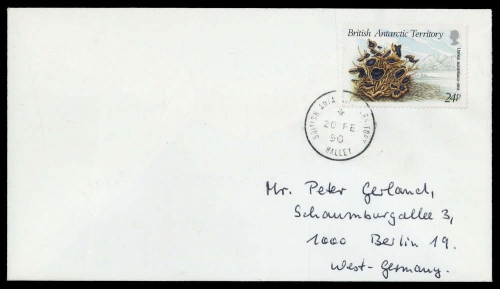 British Antarctic Territory
24p
20 FE
90
HALLEY
Mr. Peter Gerland,
Schaumburgallee 3,
1000 Berlin 19.
West-Germany.